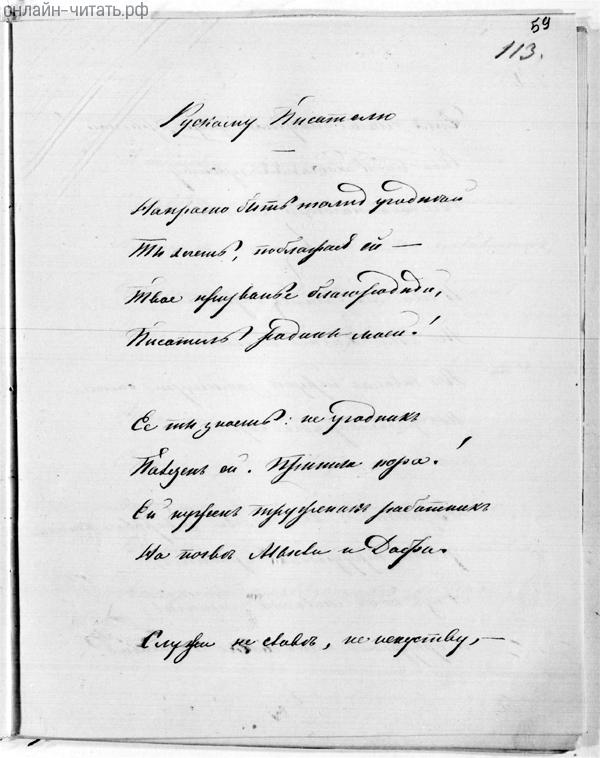 онлайн-читать.рф
59
113.
Рускому Писателю
Напрасно быть толпѣ угодной
Ты хочешь, поблажая ей —
Твое призванье благородней,
Писатель родины моей!
Ее ты знаешь: не угодникъ
Полезенъ ей. Пришла пора!
Ей нуженъ труженикъ работникъ
На почвѣ Мысли и Добра.
Служи не славѣ, не искуству, —